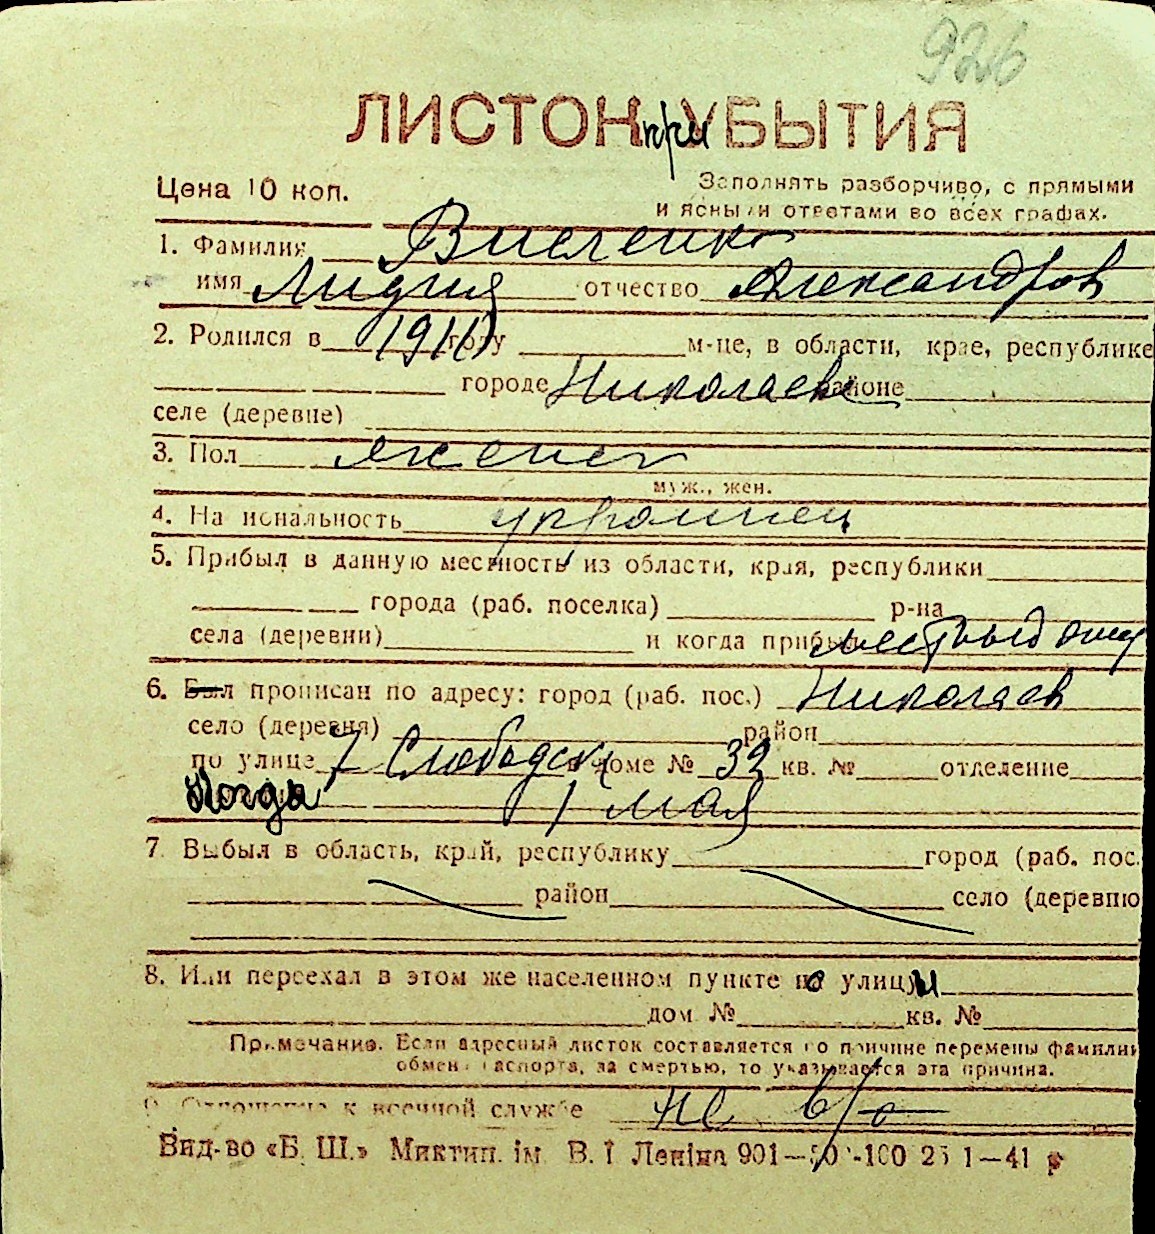 926
ЛИСТОК при УБЫТИЯ
Цена 10 коп.
Заполнять разборчиво, с прямыми
и ясными ответами во всех графах.
1. Фамилия
имя Лидия отчество Александров
2. Родился в 1911 году м-це, в области, крае, республике
городе Николаеве районе
селе (деревне)
3. Пол женск
муж., жен.
4. Национальность украинец
5. Прибыл в данную местность из области, края, республики
города (раб. поселка) р-на
села (деревни) и когда прибыл местный
6. Был прописан по адресу: город (раб. пос.) Николаев
село (деревня) район
по улице 7 Слободск доме № 32 кв. № отделение
Когда 1 мая
7. Выбыл в область, край, республику город (раб. пос.
район село (деревню
8. Или переехал в этом же населенном пункте по улицы
дом № кв. №
Примечание. Если адресный листок составляется по причине перемены фамилии
обмена паспорта, за смертью, то указывается эта причина.
9. Отношение к военной службе не в/о
Вид-во «Б. Ш.» Миктип. ім. В. І Леніна 901— -100 25 1—41 р